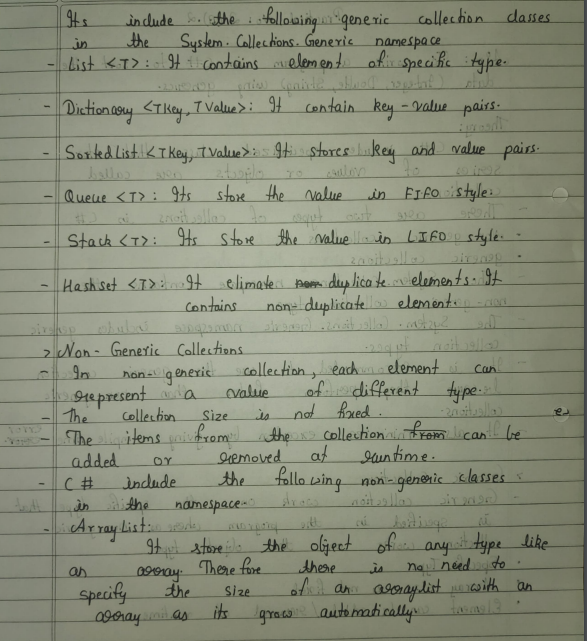 Its include the following generic collection classes
in the System.Collections.Generic namespace
- List <T>: It contains element of specific type.
- Dictionary <TKey, TValue>: It contain key-value pairs.
- SortedList <TKey, TValue>: It stores key and value pairs.
- Queue <T>: Its store the value in FIFO style.
- Stack <T>: Its store the value in LIFO style.
- Hashset <T>: It elimate duplicate elements. It
contains non-duplicate element.
> Non-Generic Collections
- In non-generic collection, each element can
represent a value of different type.
- The collection size is not fixed.
- The items from the collection from can be
added or removed at runtime.
- C# include the following non-generic classes
in the namespace.
- ArrayList:
It store the object of any type like
an array. Therefore there is no need to
specify the size of an arraylist with an
array as its grow automatically